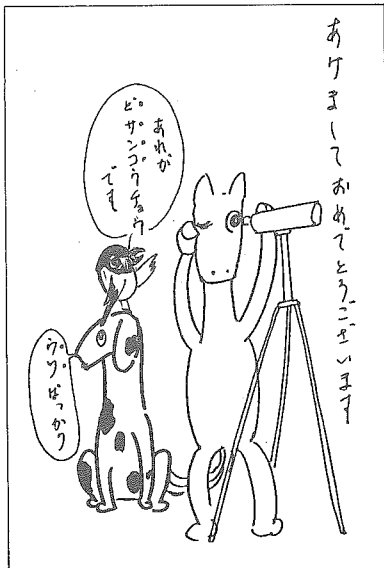 あけましておめでとうございます
あれが
ピサンコウチョウ
です
ウソばっかり